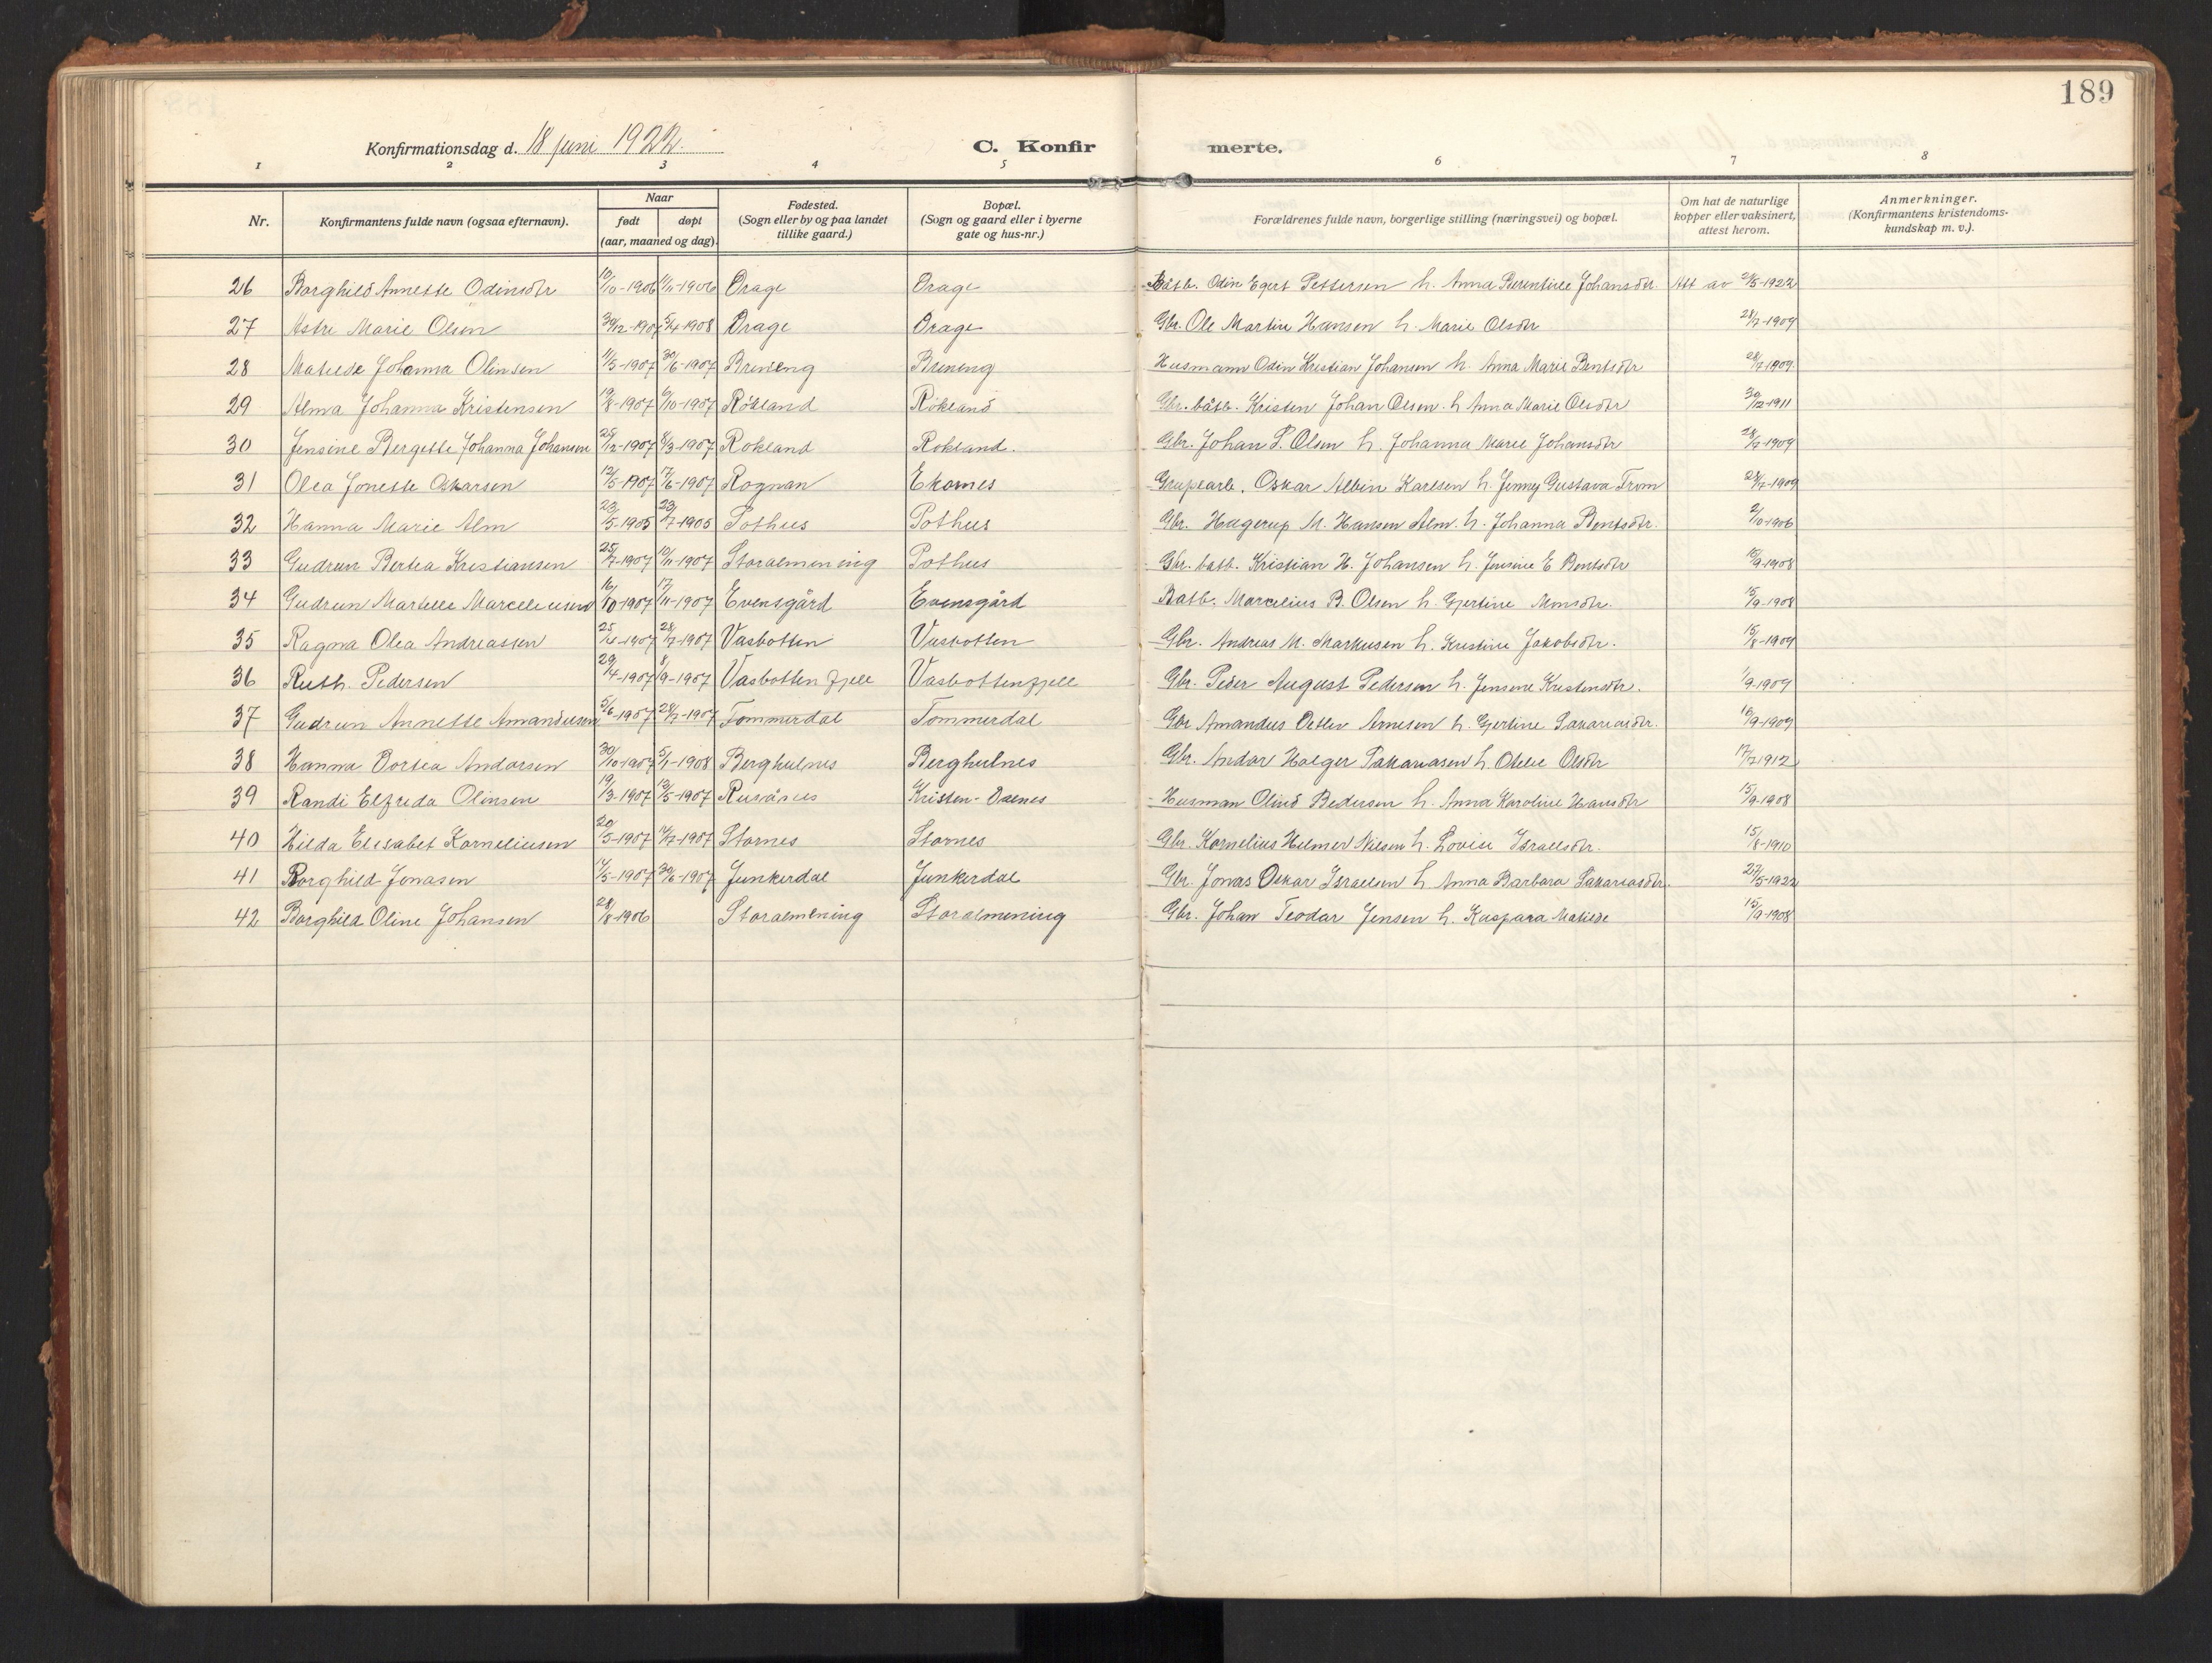 189
Konfirmationsdag d. 18 juni 1922.
C. Konfirmerte.
1 2 3 4 5 6 7 8
Nr.
Konfirmantens fulde navn (ogsaa efternavn).
Naar
født døpt
(aar, maaned og dag).
Fødested.
(Sogn eller by og paa landet
tillike gaard.)
Bopæl.
(Sogn og gaard eller i byerne
gate og hus-nr.)
Forældrenes fulde navn, borgerlige stilling (næringsvei) og bopæl.
Om hat de naturlige
kopper eller vaksinert,
attest herom.
Anmerkninger.
(Konfirmantens kristendoms-
kundskap m. v.).
26 Borghild Annette Odinsdtr 10/10-1906 11/11-1906 Drage Drage Båtb. Odin Egert Pettersen h. Anna Berentine Johansdtr. Att av 24/5-1922
27 Astri Marie Olsen 30/12-1907 5/4-1908 Drage Drage Gbr. Ole Martin Hansen h. Marie Olsdtr 28/7-1909
28 Matilde Johanna Olinsen 11/5-1907 30/6-1907 Bruneng Bruneng Husmann Odin Kristian Johansen h. Anna Marie Bentsdtr 28/7-1909
29 Alma Johanna Kristensen 19/8-1907 6/10-1907 Røkland Røkland Gbr. båtb. Kristen Johan Olsen h. Anna Marie Olsdtr 30/12-1911
30 Jensine Bergette Johanna Johansen 25/12-1907 8/3-1907 Rokland Rokland. Gbr. Johan P. Olsen h. Johanna Marie Johansdtr 28/7-1909
31 Olea Jonette Oskarsen 12/5-1907 17/6-1907 Rognan Ekornes Grupearb. Oskar Albin Karlsen h. Jenny Gustava From 28/7-1909
32 Hanna Marie Alm 23/5-1905 23/7-1905 Pothus Pothus Gbr. Hagerup M. Hansen Alm. h. Johanna Bentsdtr. 2/10-1906
33 Gudrun Bertea Kristiansen 25/7-1907 10/11-1907 Storalmening Pothus Gbr. båtb. Kristian H. Johansen h. Jensine E Bentsdtr 15/9-1908
34 Gudrun Martelle Marceliusen 16/10-1907 17/11-1907 Evensgård Evensgård Båtb. Marcelius B. Olsen h. Gjertine Monsdtr. 15/9-1908
35 Ragna Olea Andreassen 25/6-1907 28/7-1907 Vasbotten Vasbotten Gbr. Andreas M. Markusen h. Kristine Jakobsdtr. 15/8-1909
36 Ruth Pedersen 29/4-1907 8/9-1907 Vasbottenfjell Vasbottenfjell Gbr. Peder August Pedersen h. Jensine Kristensdtr. 1/9-1909
37 Gudrun Annette Amandusen 5/6-1907 28/7-1907 Tommerdal Tommerdal Gbr Amandus Detlev Arnesen h. Gjertine Sakariasdtr. 16/9-1909
38 Hanna Dortea Andorsen 30/10-1907 5/1-1908 Berghulnes Berghulnes Gbr. Andor Holger Sakariasen h. Otelie Olsdtr 17/7 1912
39 Randi Elfreda Olinsen 19/3-1907 13/5-1907 Rusånes Kristen-Oxenes Husman Olind Pedersen h. Anna Karoline Hansdtr 15/9-1908
40 Hilda Elisabet Korneliusen 20/5-1907 14/7-1907 Stornes Stornes Gbr. Kornelius Helmer Nilsen h. Lovise Israelsdtr. 15/8-1910
41 Borghild Jonasen 17/5-1907 30/6-1907 Junkerdal Junkerdal Gbr. Jonas Oskar Israelsen h Anna Barbara Sakariasdtr. 27/5-1922
42 Borghild Oline Johansen 28/8-1906 Storalmening Storalmening Gbr. Johan Teodor Jensen h. Kaspara Matilde 15/9-1908